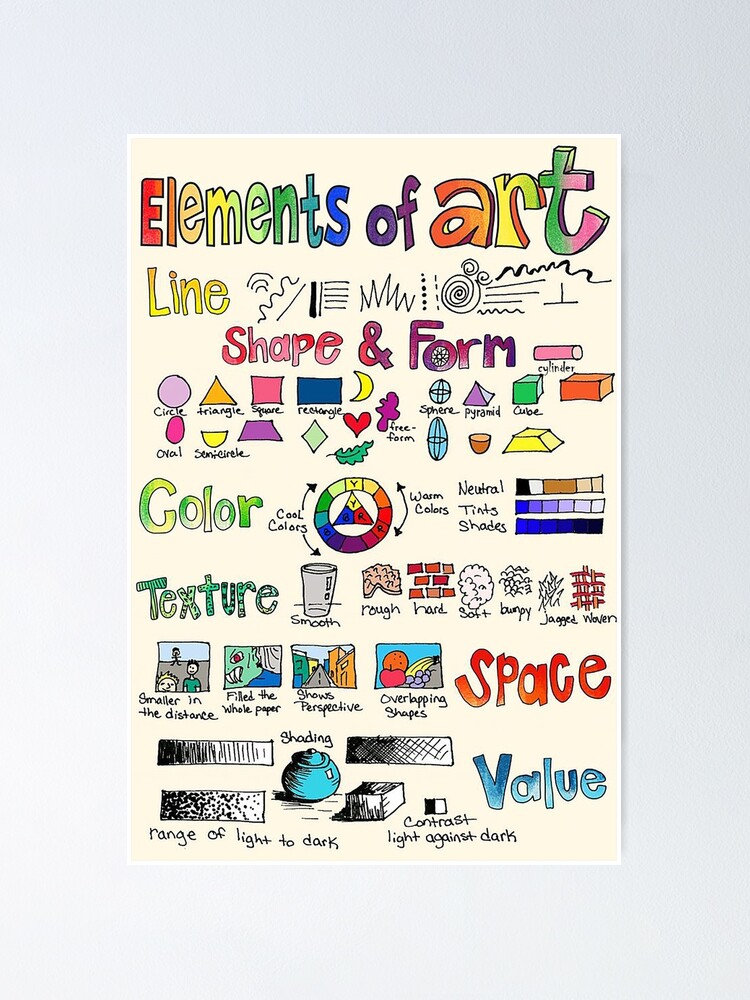 Elements of art
Line
Shape & Form
cylinder
Circle triangle square rectangle Sphere pyramid Cube
free-
form
Oval Semicircle
Color
Cool
Colors
Y
Y
B R
B R
Warm
Colors
Neutral
Tints
Shades
Texture
Smooth rough hard Soft bumpy Jagged Woven
Smaller in
the distance
Filled the
whole paper
Shows
Perspective
Overlapping
Shapes
Space
Shading
Value
range of light to dark
Contrast
light against dark